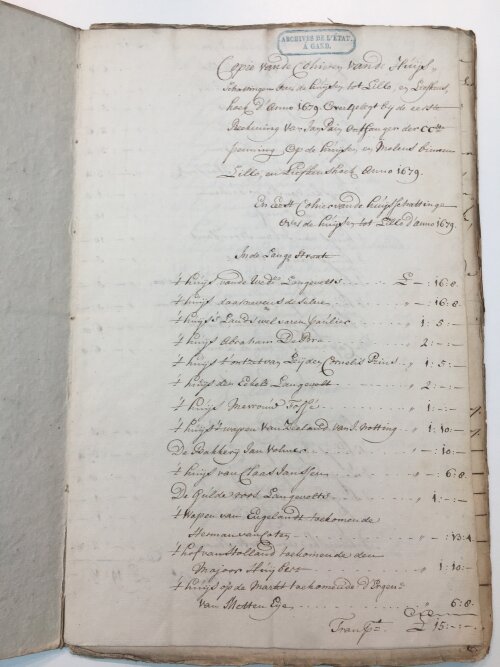 ARCHIVES DE L'ÉTAT.
À GAND.
Copie vande Cohieren vande Huijs-
schattingen over de huijsen tot Lillo, en Liefkens-
hoek d'Anno 1679. Overgelegt bij de eerste
Rekening van Jan Pain Ontfanger der CCste
penning Op de huijsen, en Molens binnen
Lillo, en Liefkenshoek Anno 1679.
En eerst Cohier vande huijsschattinge
Over de huijsen tot Lillo d'anno 1679.
Inde Lange Straat
't huijs vande Wede Langevelts £ — : 16 : 8.
't huijs daarnevens de selve — : 16 : 8
't huijs 's Lands wel varen Paulier „ 1 : 5 : —
't huijs Abraham De Pere „ 2 : — : —
't huijs t'ontzet van Leijden Cornelis Prins „ 1 : 5 : —
't huijs den Eekels Langevelt „ 2 : — : —
't huijs Toffé „ 1 : — : —
't huijs 't wapen van Zeeland van J. Notting „ 1 : 10 : —
De Bakkerij Jan Volmer „ — : 10 : —
't huijs van Claas Janssen „ — : 6 : 8
De Gulde roos Langevelts „ 1 : — : —
't Wapen van Engelandt toekomende
Herman van Coten „ — : 13 : 4
't hof van Holland toekomende den
Majoor Huijbert „ 1 : 10 : —
't huijs op de Markt toekomende d'Erfgen:
van Metten Eye „ 6 : 8
Transpte £ 15 : — : —